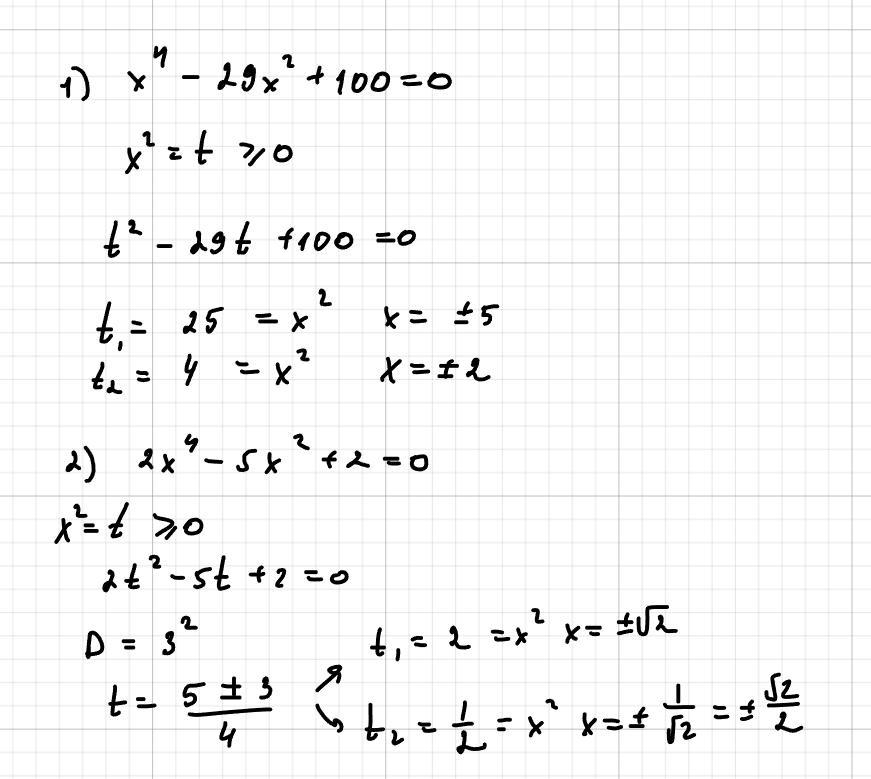 1) x⁴ - 29x² + 100 = 0
x² = t ⩾ 0
t² - 29t + 100 = 0
t₁ = 25 = x² x = ±5
t₂ = 4 = x² x = ±2
2) 2x⁴ - 5x² + 2 = 0
x² = t ⩾ 0
2t² - 5t + 2 = 0
D = 3²
t = (5 ± 3)/4 ↗ t₁ = 2 = x² x = ±√2
↘ t₂ = 1/2 = x² x = ± 1/√2 = ± √2/2